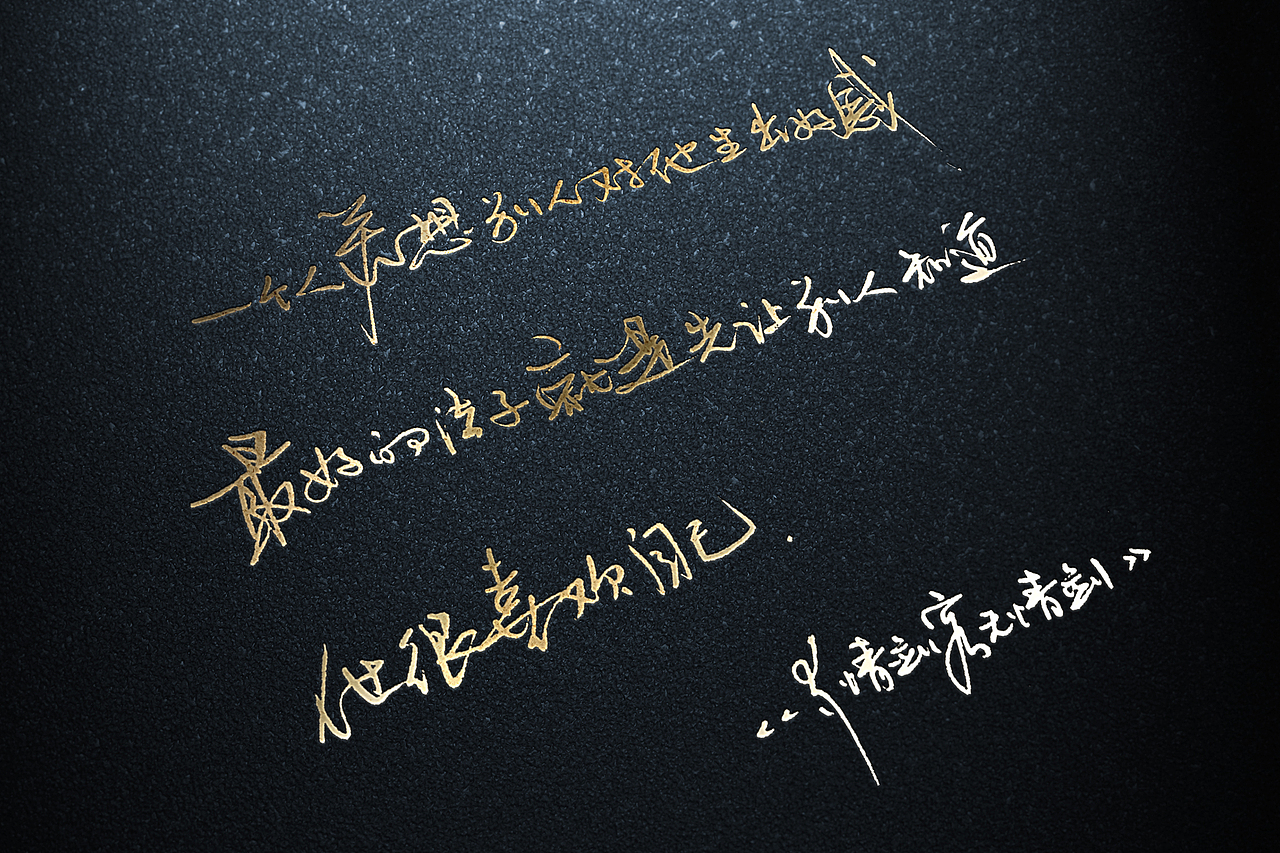 一个人若想别人对他生出好感
最好的法子就是先让别人知道
他很喜欢自己.
《多情剑客无情剑》